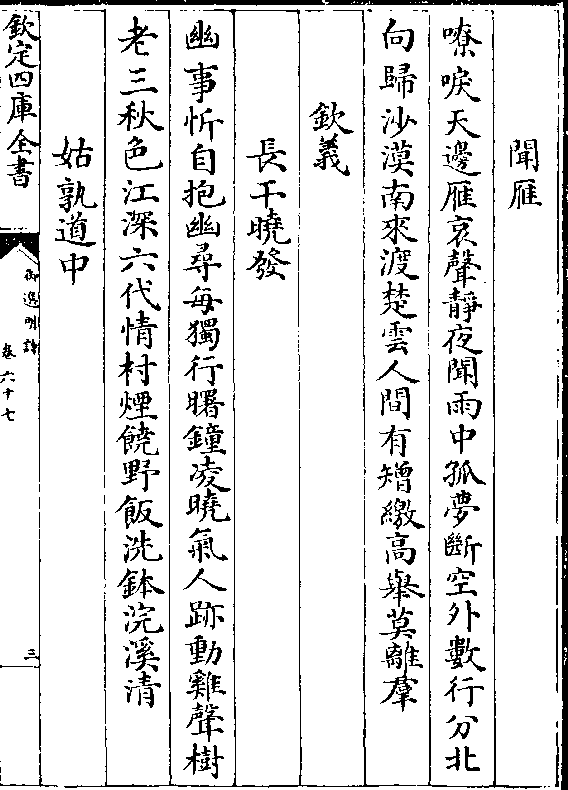 聞雁
嘹唳天邊雁哀聲靜夜聞雨中孤夢斷空外數行分北
向歸沙漠南來渡楚雲人間有矰繳高舉莫離羣
欽義
長干曉發
幽事忻自抱幽尋每獨行曙鐘凌曉氣人跡動雞聲樹
老三秋色江深六代情村煙饒野飯洗鉢浣溪清
姑孰道中
欽定四庫全書
御選明詩
卷六十七
三